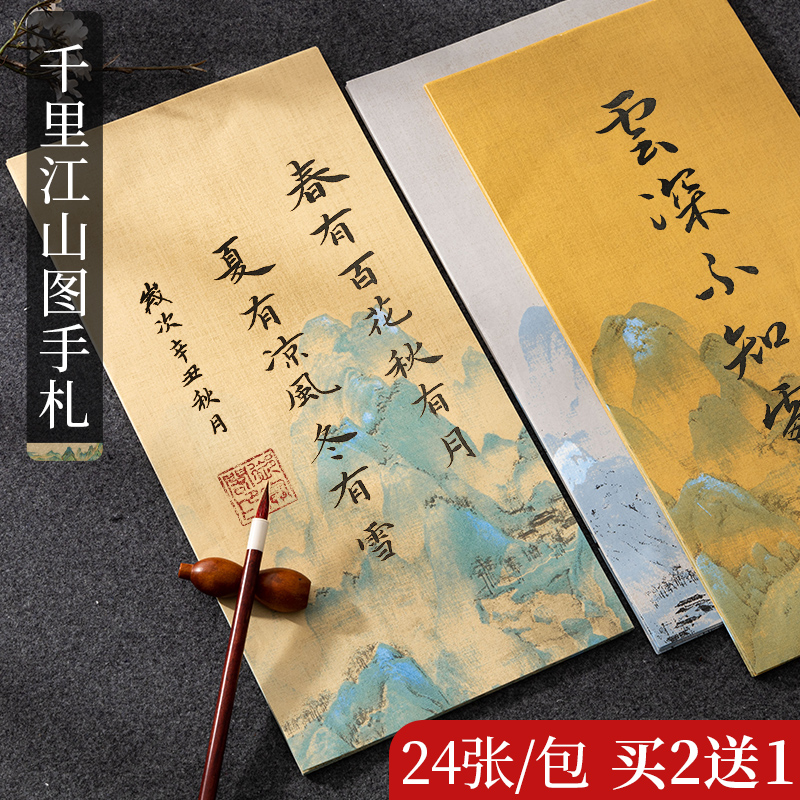 千里江山图手札
春有百花秋有月
夏有凉風冬有雪
歲次辛丑秋月
雲深不知處
24张/包 买2送1